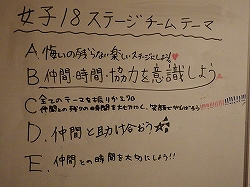 女子18ステージチームテーマ
A. 悔いの残らない楽しいステージにしよう♥
B. 仲間・時間・協力を意識しよう
C. 全てのテーマを振りかえり
仲間との残りの時間を大切にし、笑顔でがんばろう
D. 仲間と助け合おう
E. 仲間との時間を大切にしよう!!